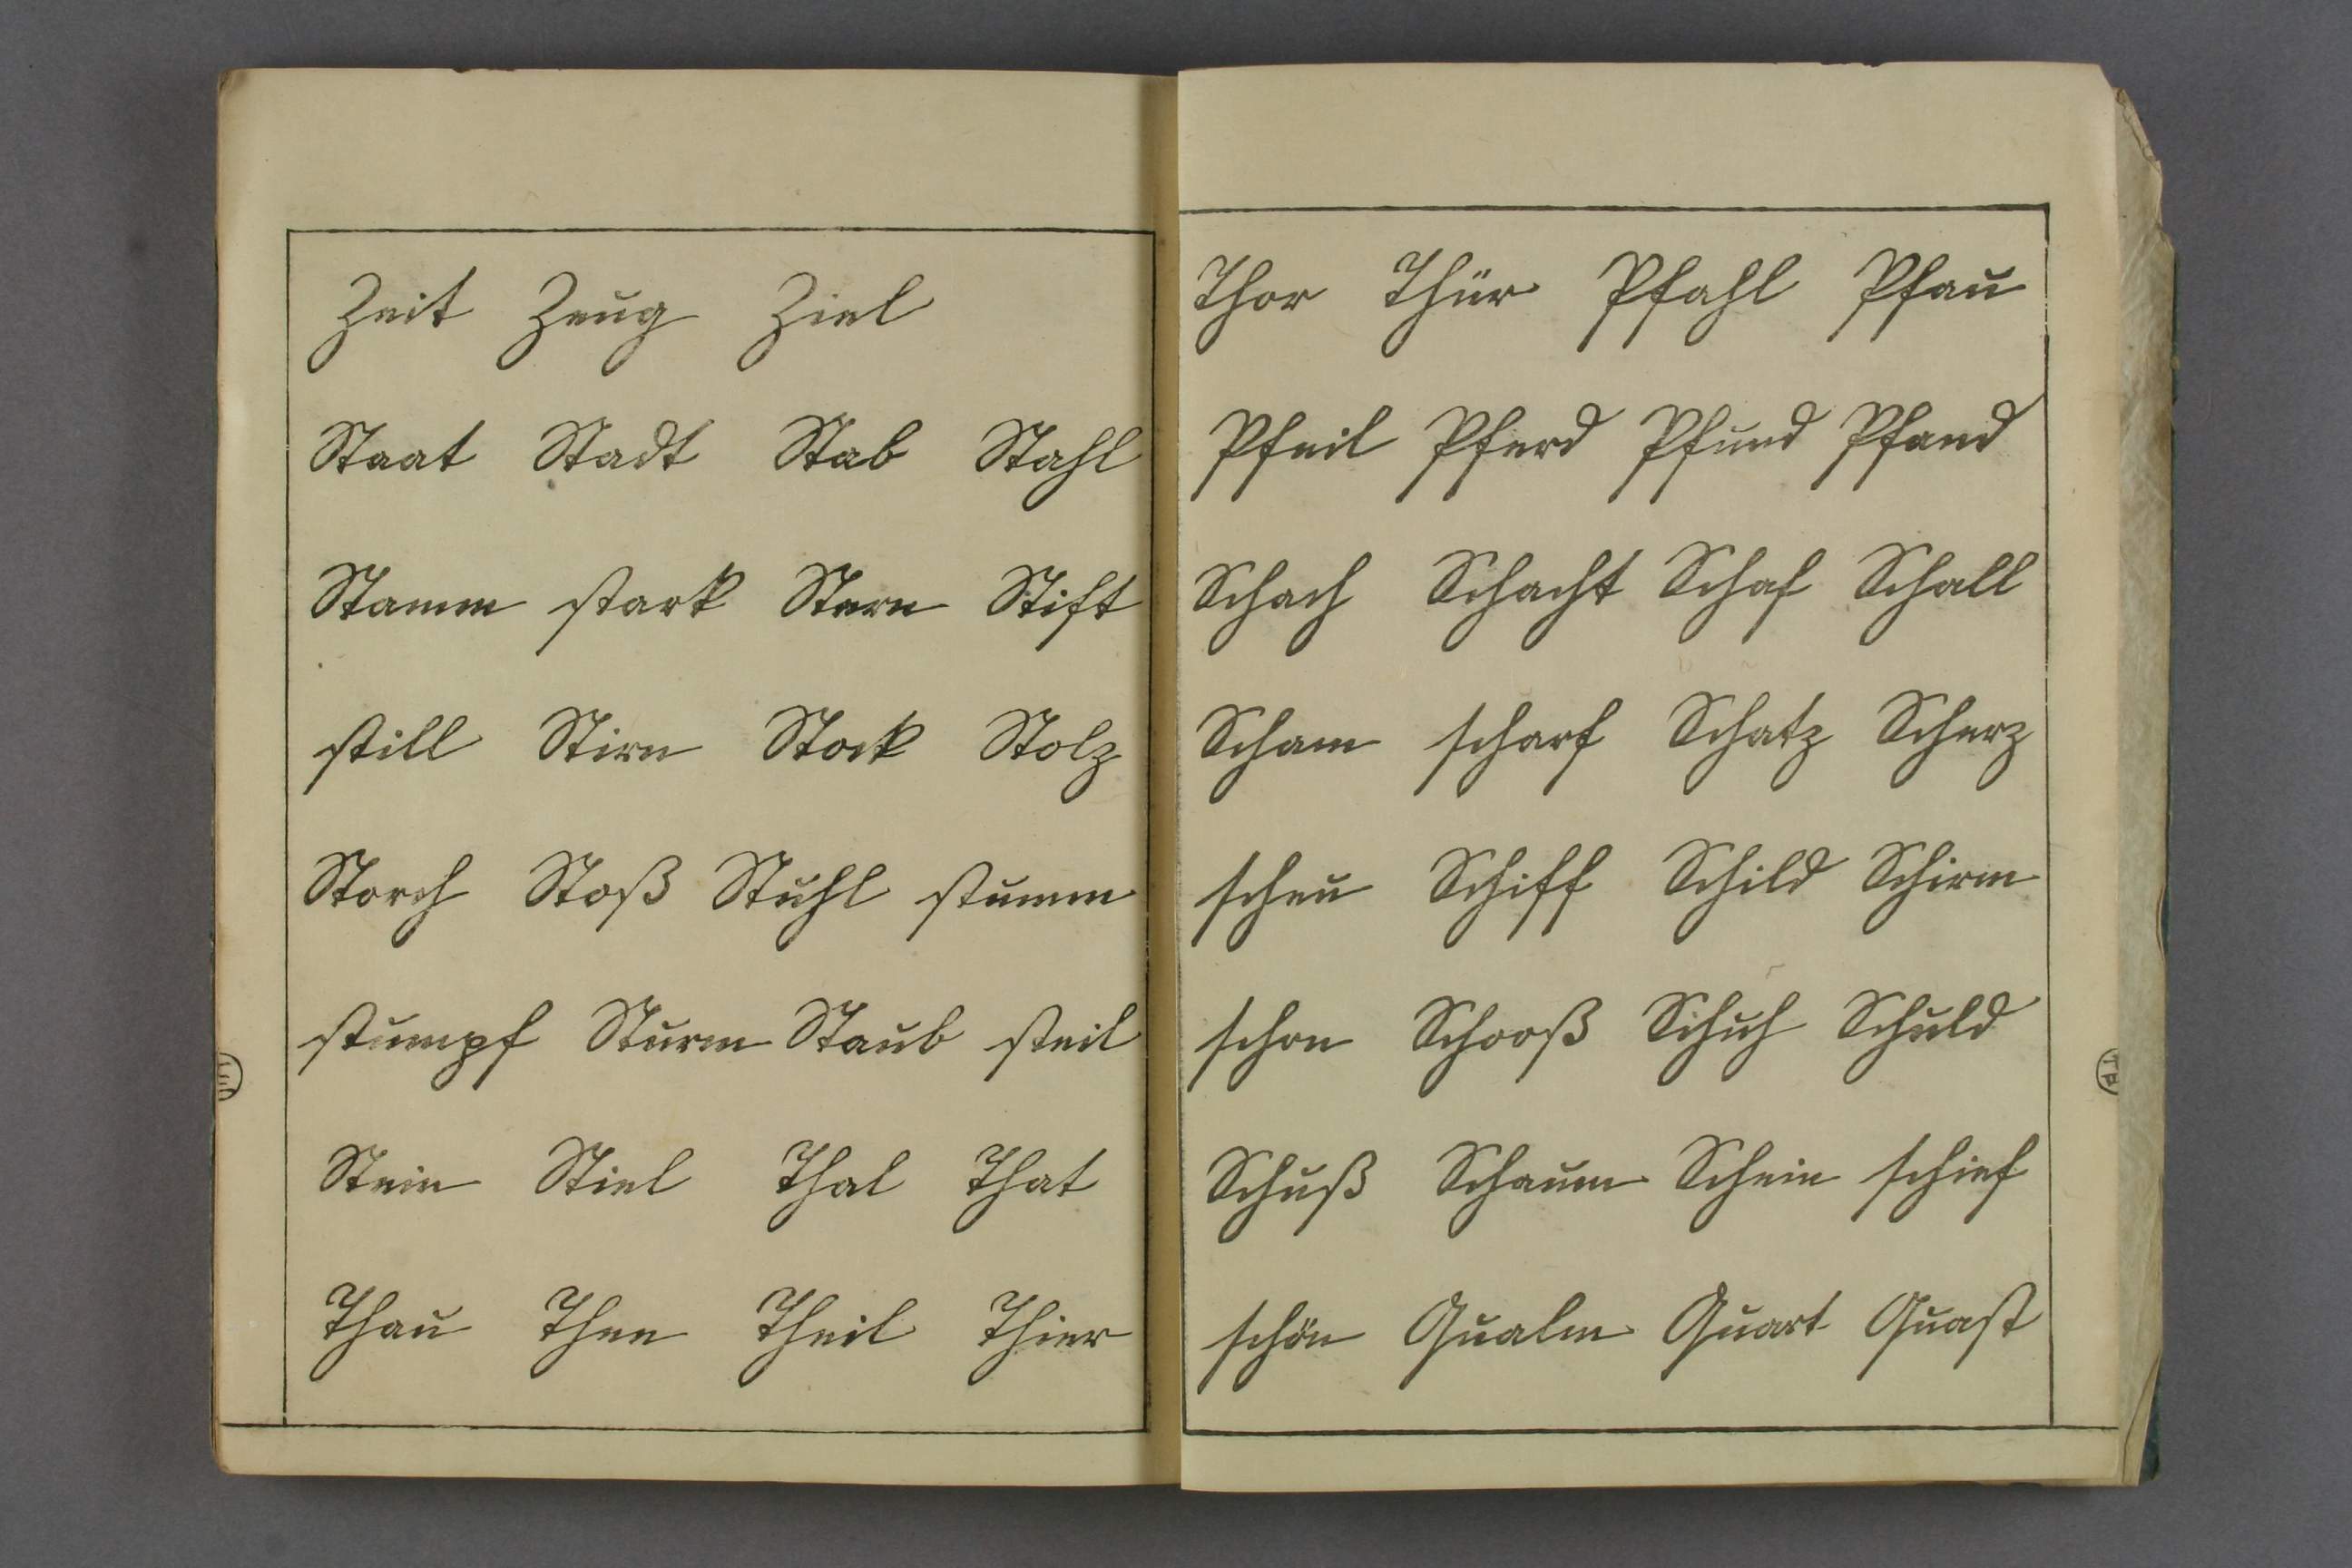 Zeit Zeug Ziel
Staat Stadt Stab Stahl
Stamm stark Stern Stift
still Stirn Stock Stolz
Storch Stoß Stuhl stumm
stumpf Sturm Staub steil
Stein Stiel Thal That
Thau Thee Theil Thier
Thor Thür Pfahl Pfau
Pfeil Pferd Pfund Pfand
Schach Schacht Schaf Schall
Scham scharf Schatz Scherz
scheu Schiff Schild Schirm
schon Schooß Schuh Schuld
Schuß Schaum Schein schief
schön Qualm Quart Quast